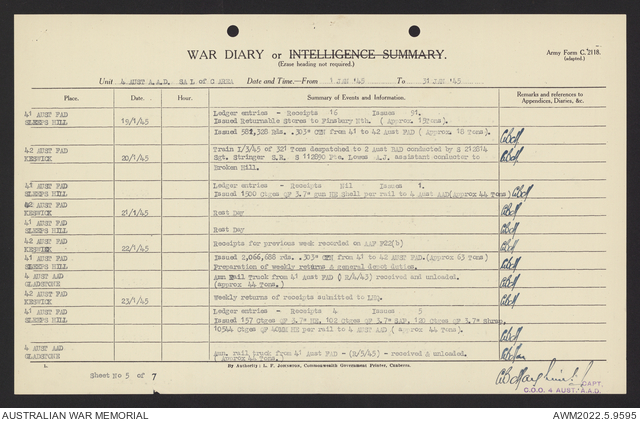 WAR DIARY or INTELLIGENCE SUMMARY.
(Erase heading not required).
Army Form C.2118.
(adapted.)
Unit 4 AUST A.A.D. SA L of C AREA Date and Time.—From 1 JAN '45 To 31 JAN '45
Place. Date. Hour. Summary of Events and Information. Remarks and references to Appendices, Diaries, &c.
41 AUST FAD
SLEEPS HILL 19/1/45 Ledger entries - Receipts 16 Issues 91.
Issued Returnable Stores to Finsbury Nth. ( Approx. 15Tons).
Issued 581,328 rds. .303" CTN from 41 to 42 Aust FAD ( Approx. 18 Tons).
42 AUST FAD
KESWICK 20/1/45 Train I/3/45 of 321 Tons despatched to 2 Aust BAD conducted by S 212614
Sgt. Stringer S.R. S 112890 Pte. Lowes A.J. assistant conductor to
Broken Hill.
41 AUST FAD
SLEEPS HILL Ledger entries - Receipts Nil Issues 1.
Issued 1500 Ctges QF 3.7" gun HE Shell per rail to 4 Aust AAD(Approx 44 Tons)
42 AUST FAD
KESWICK 21/1/45 Rest Day
41 AUST FAD
SLEEPS HILL Rest Day
42 AUST FAD
KESWICK 22/1/45 Receipts for previous week recorded on AAF F22(b)
41 AUST FAD
SLEEPS HILL Issued 2,066,688 rds. .303" CTN from 41 to 42 AUST FAD.(Approx 63 Tons)
Preparation of weekly returns & general depot duties.
4 AUST AAD
GLADSTONE Amn Rail Truck from 41 Aust FAD (R/4/43) received and unloaded.
(approx 44 Tons.)
42 AUST FAD
KESWICK 23/1/45 Weekly returns of receipts submitted to LHQ.
41 AUST FAD
SLEEPS HILL Ledger entries - Receipts 4 Issues 5
Issued 157 Ctges QF 3.7" HE, 102 Ctges QF 3.7" SAP, 120 Ctges QF 3.7" Shrap,
10544 Ctges QF 40MM HE per rail to 4 AUST AAD ( approx 44 Tons).
4 AUST AAD
GLADSTONE Amn. rail truck from 41 Aust FAD - (R/5/45) - received & unloaded.
(Approx 44 Tons.)
By Authority: L. F. Johnston, Commonwealth Government Printer, Canberra.
Sheet No 5 of 7
CAPT.
C.O.O. 4 AUST. A.A.D.
AUSTRALIAN WAR MEMORIAL
AWM2022.5.9595